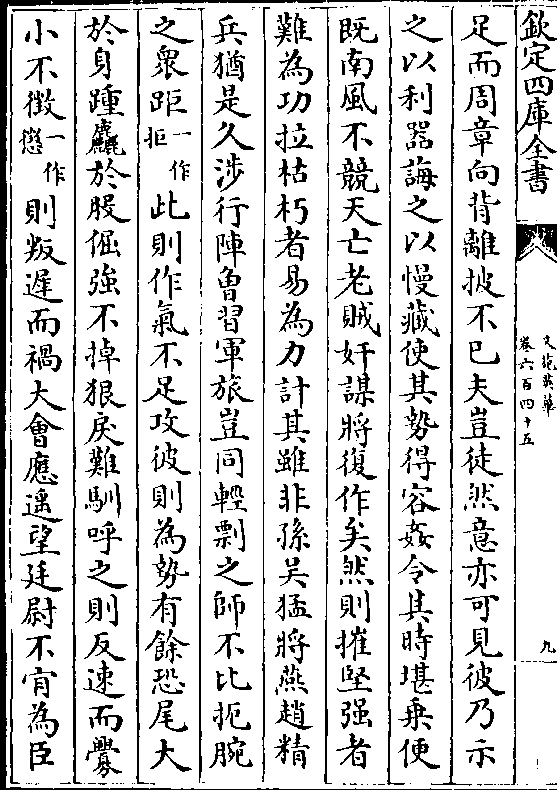 欽定四庫全書
文苑英華
卷六百四十五
九
足而周章向背離披不已夫豈徒然意亦可見彼乃示
之以利器誨之以慢藏使其勢得容姦令其時堪乗便
既南風不競天亡老賊奸謀將復作矣然則摧堅强者
難為功拉枯朽者易為力計其雖非孫吳猛將燕趙精
兵猶是久涉行陣魯習軍旅豈同輕剽之師不比扼腕
之衆距一作拒此則作氣不足攻彼則為勢有餘恐尾大
於身踵麤於股倔强不掉狠戾難馴呼之則反速而釁
小不徵一作懲則叛遲而禍大會應遥望廷尉不肻為臣